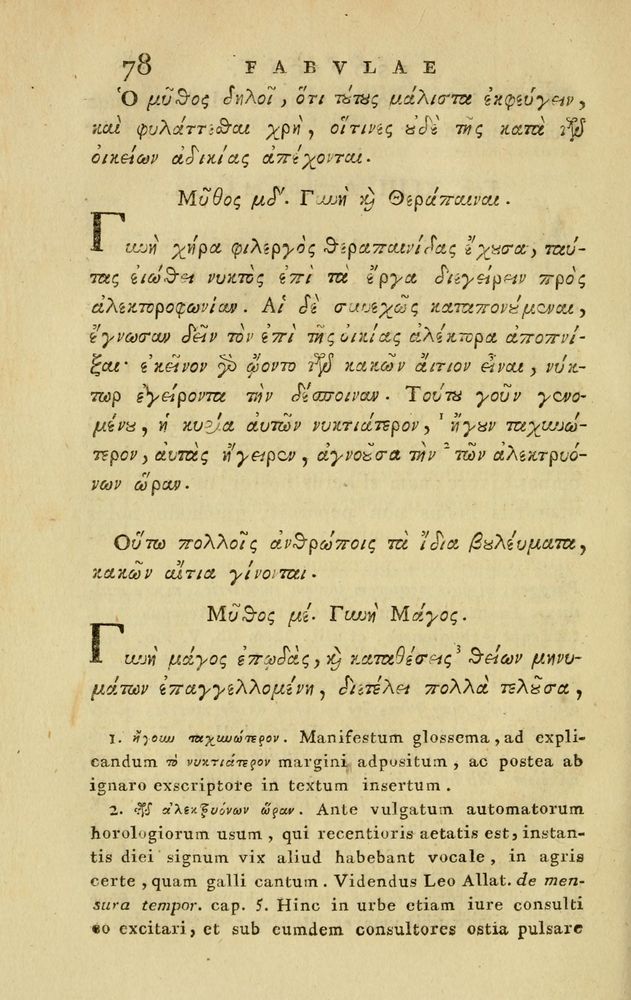 78 FABVLAE
Ὁ μῦθος δηλοῖ, ὅτι τούτους μάλιστα ἐκφεύγειν,
καὶ φυλάττεσθαι χρὴ, οἵτινες οὐδὲ τῆς κατὰ τῶν
οἰκείων ἀδικίας ἀπέχονται.
Μῦθος μδʹ. Γυνὴ καὶ Θεράπαιναι.
Γυνὴ χήρα φιλεργὸς θεραπαινίδας ἔχουσα, ταύ-
τας εἰώθει νυκτὸς ἐπὶ τὰ ἔργα διεγείρειν πρὸς
ἀλεκτοροφωνίαν. Αἱ δὲ συνεχῶς καταπονούμεναι,
ἔγνωσαν δεῖν τὸν ἐπὶ τῆς οἰκίας ἀλέκτορα ἀποπνί-
ξαι· ἐκεῖνον γὰρ ᾤοντο τῶν κακῶν αἴτιον εἶναι, νύκ-
τωρ ἐγείροντα τὴν δέσποιναν. Τούτου γοῦν γενο-
μένου, ἡ κυρία αὐτῶν νυκτιάτερον, ¹ ἤγουν ταχυνώ-
τερον, αὐτὰς ἤγειρεν, ἀγνοοῦσα τὴν ² τῶν ἀλεκτρυό-
νων ὥραν.
Οὕτω πολλοῖς ἀνθρώποις τὰ ἴδια βουλεύματα,
κακῶν αἴτια γίνονται.
Μῦθος μέ. Γυνὴ Μάγος.
Γυνὴ μάγος ἐπῳδὰς, καὶ καταθέσεις ³ θείων μηνυ-
μάτων ἐπαγγελλομένη, διετέλει πολλὰ τελοῦσα,
1. ἤγουν ταχυνώτερον. Manifestum glossema, ad expli-
candum τὸ νυκτιάτερον margini adpositum, ac postea ab
ignaro exscriptore in textum insertum.
2. τῶν ἀλεκτρυόνων ὥραν. Ante vulgatum automatorum
horologiorum usum, qui recentioris aetatis est, instan-
tis diei signum vix aliud habebant vocale, in agris
certe, quam galli cantum. Videndus Leo Allat. de men-
sura tempor. cap. 5. Hinc in urbe etiam iure consulti
eo excitari, et sub eumdem consultores ostia pulsare